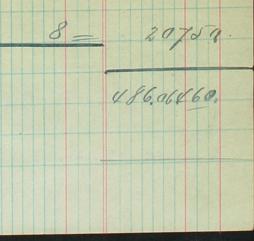 8 = 20750.
486.06460.